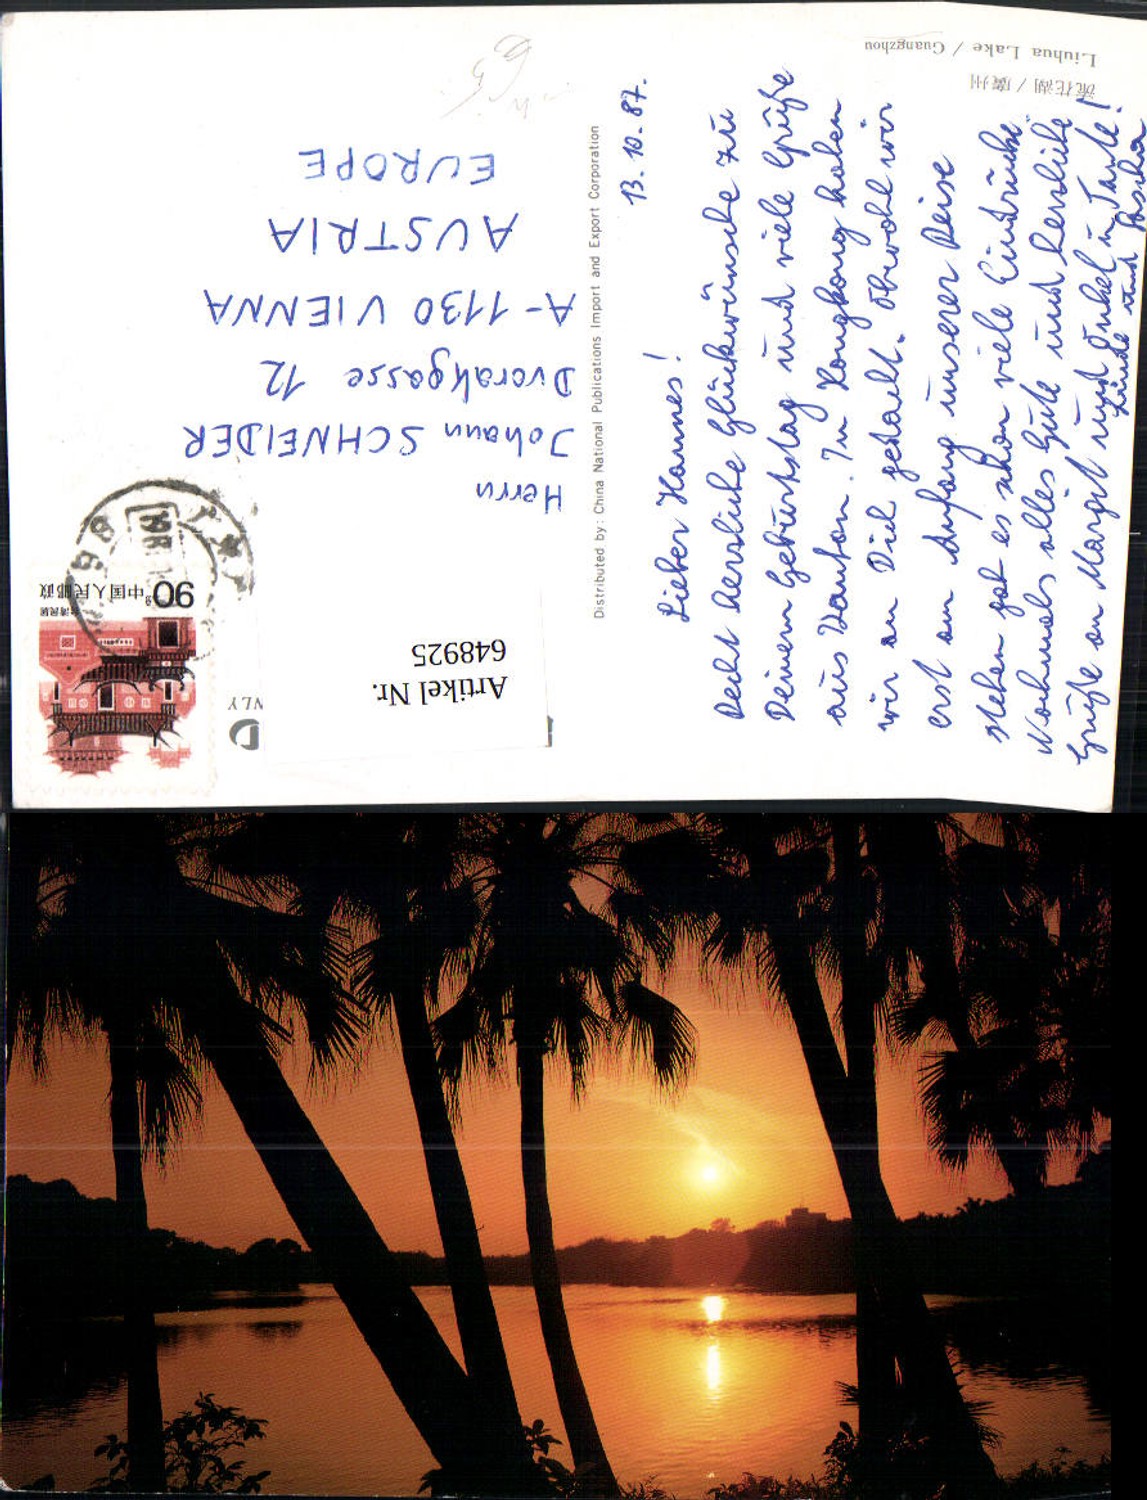 流花湖 / 廣州
Liuhua Lake / Guangzhou
13. 10. 87.
Lieber Hannes!
Recht herzliche Glückwünsche zu
Deinem Geburtstag und viele Grüße
aus Kanton. In Hongkong haben
wir an Dich gedacht. Obwohl wir
erst am Anfang unserer Reise
stehen gab es schon viele Eindrücke.
Nochmals alles Gute und herzliche
Grüße an Margit und Onkel u. Tante!
Linde und
Distributed by: China National Publications Import and Export Corporation
Herrn
Johann SCHNEIDER
Dvorakgasse 12
A-1130 VIENNA
AUSTRIA
EUROPE
90分 中国人民邮政
台湾民居
Artikel Nr.
648925
NLY